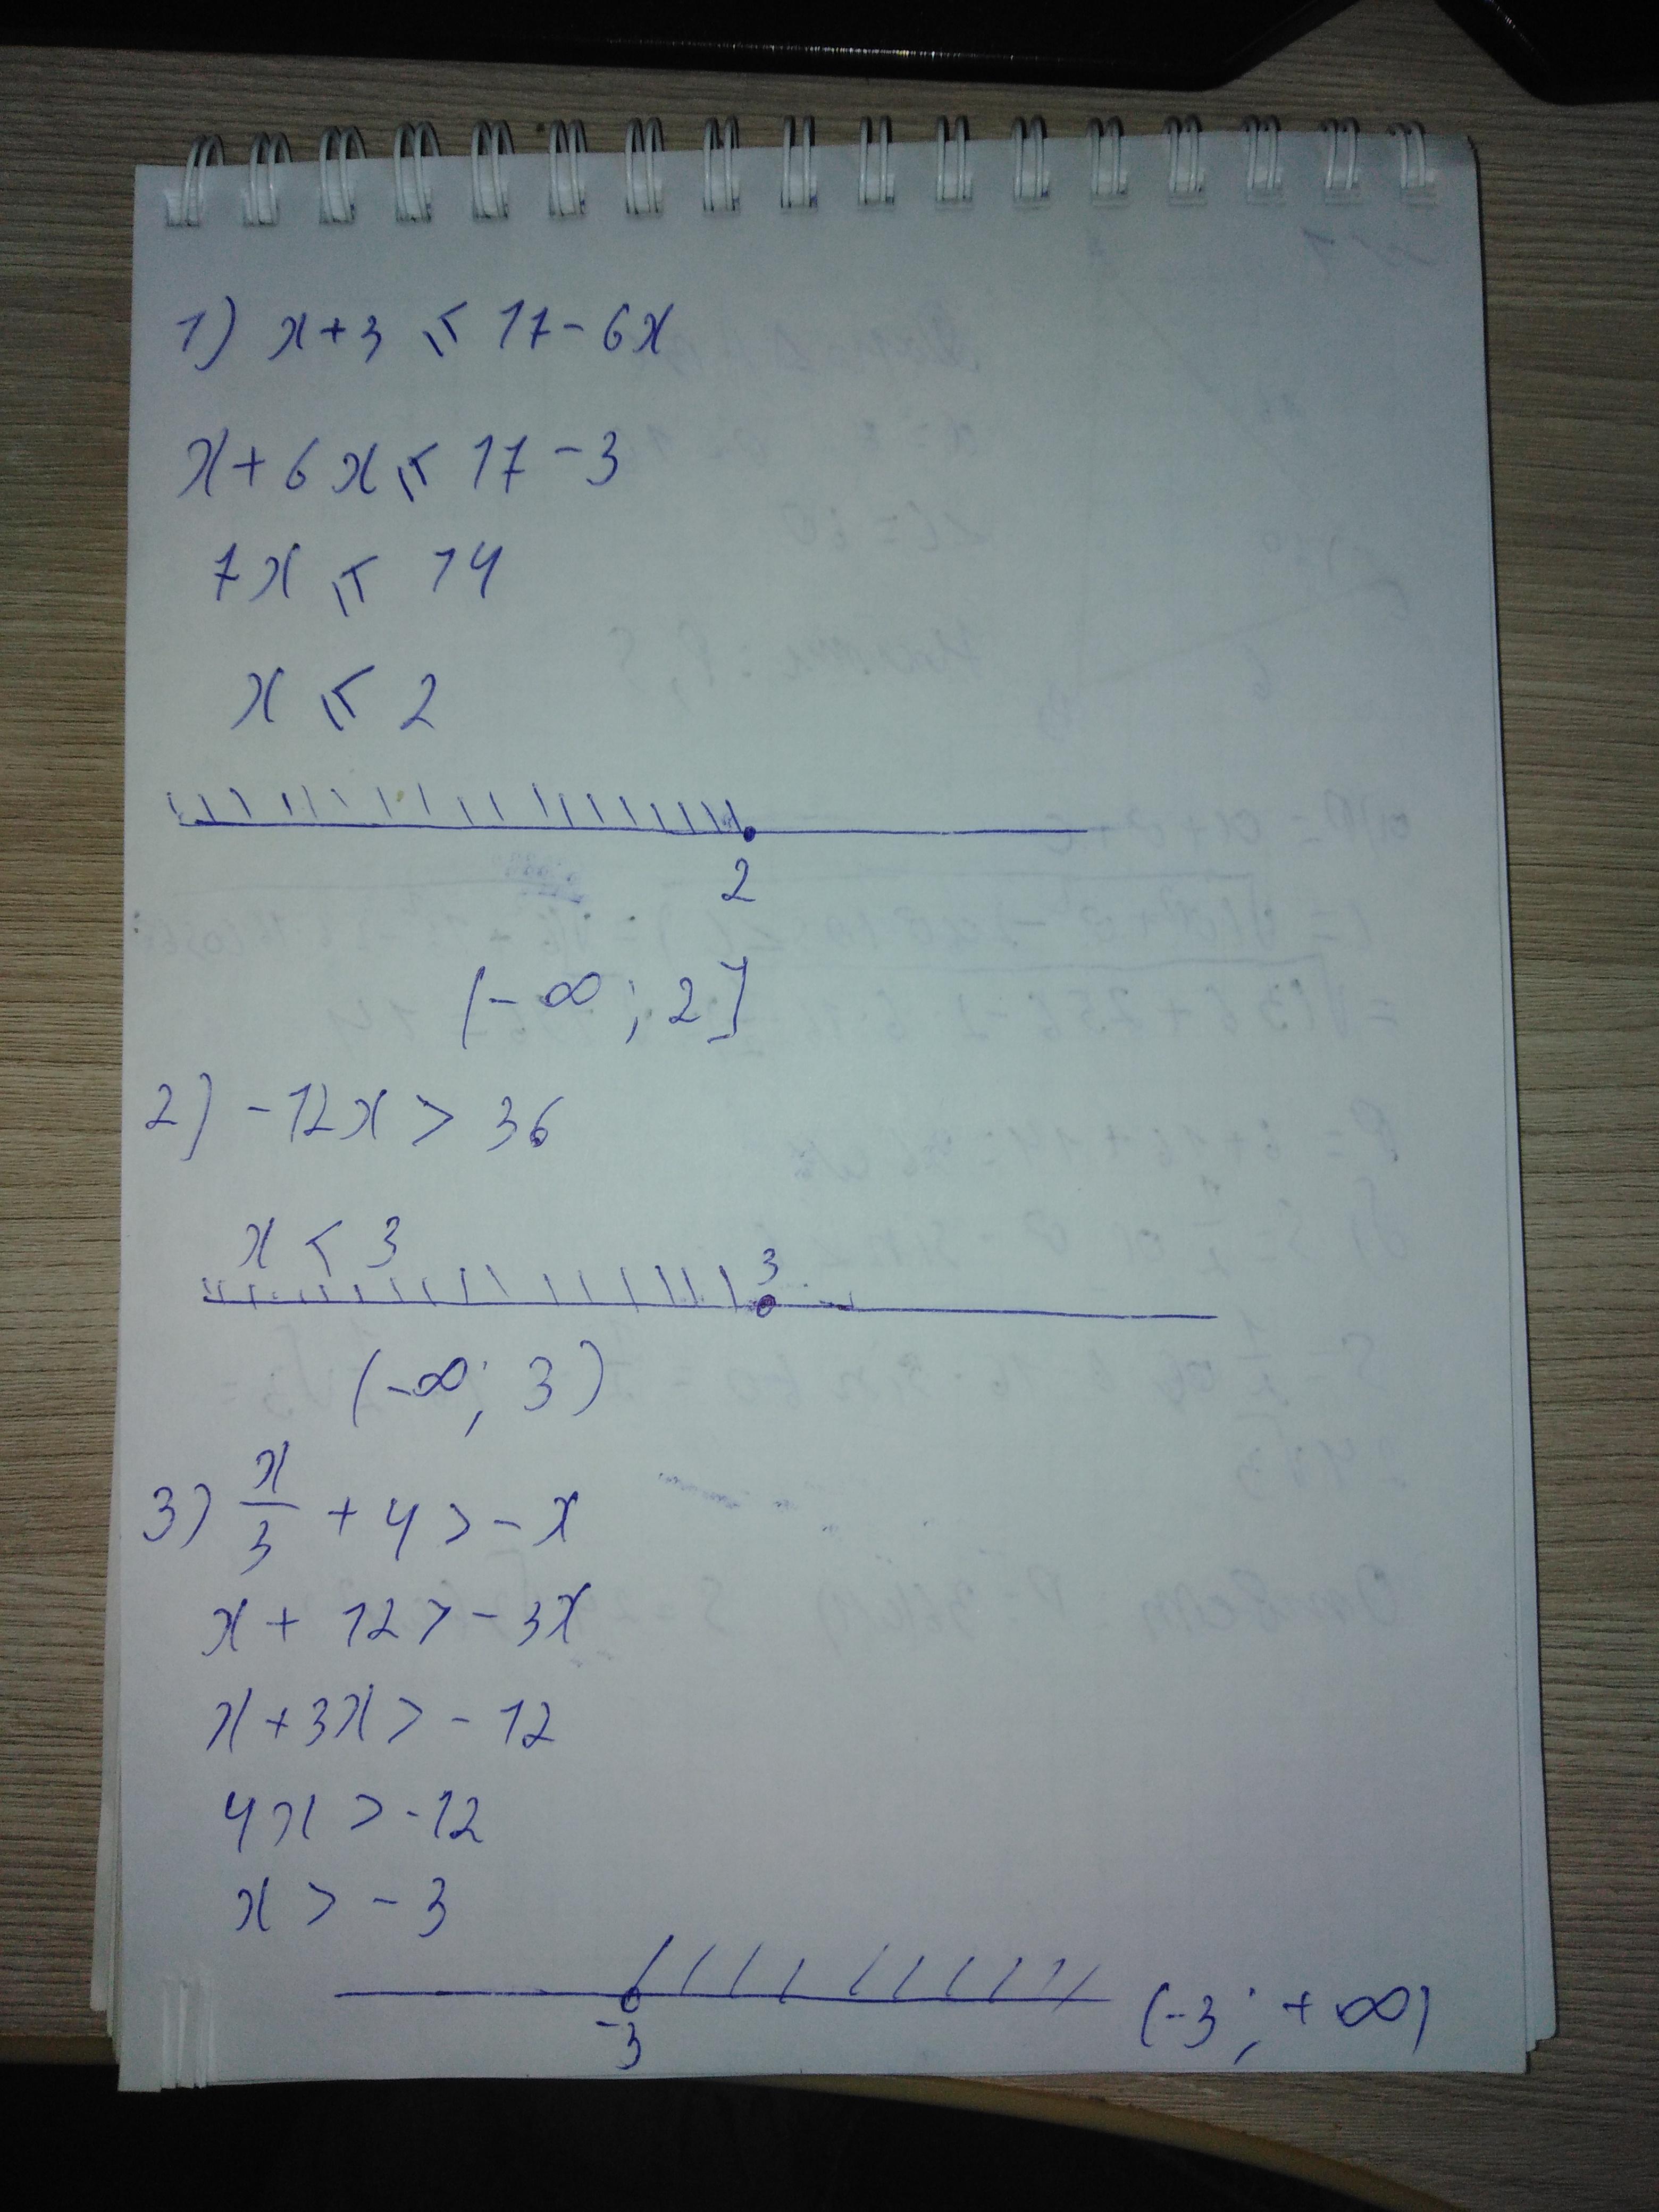 1) x+3 ≤ 17-6x
x+6x ≤ 17-3
7x ≤ 14
x ≤ 2
2
(-∞; 2]
2) -12x > 36
x < 3
3
(-∞; 3)
3) x/3 + 4 > -x
x + 12 > -3x
x+3x > -12
4x > -12
x > -3
-3
(-3; +∞)